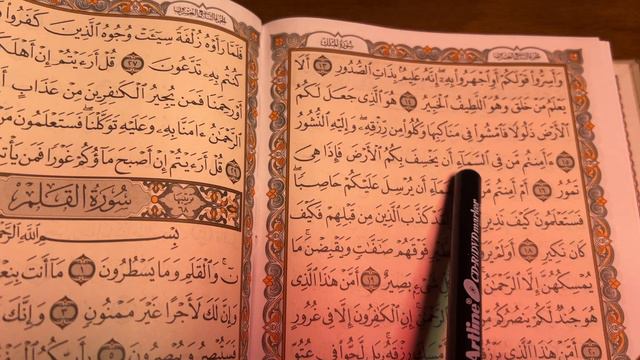 سُورَةُ المُلْكِ
وَأَسِرُّوا۟ قَوْلَكُمْ أَوِ ٱجْهَرُوا۟ بِهِۦٓ إِنَّهُۥ عَلِيمٌۢ بِذَاتِ ٱلصُّدُورِ ١٣ أَلَا
يَعْلَمُ مَنْ خَلَقَ وَهُوَ ٱللَّطِيفُ ٱلْخَبِيرُ ١٤ هُوَ ٱلَّذِى جَعَلَ لَكُمُ
ٱلْأَرْضَ ذَلُولًا فَٱمْشُوا۟ فِى مَنَاكِبِهَا وَكُلُوا۟ مِن رِّزْقِهِۦ وَإِلَيْهِ ٱلنُّشُورُ
١٥ ءَأَمِنتُم مَّن فِى ٱلسَّمَآءِ أَن يَخْسِفَ بِكُمُ ٱلْأَرْضَ فَإِذَا هِىَ
تَمُورُ ١٦ أَمْ أَمِنتُم أَن يُرْسِلَ عَلَيْكُمْ حَاصِبًا
فَسَتَعْلَمُونَ كَيْفَ نَذِيرِ كَذَّبَ ٱلَّذِينَ مِن قَبْلِهِمْ فَكَيْفَ
كَانَ نَكِيرِ ١٨ أَوَلَمْ فَوْقَهُمْ صَٰٓفَّٰتٍ وَيَقْبِضْنَ مَا
يُمْسِكُهُنَّ إِلَّا ٱلرَّحْمَٰنُ بَصِيرٌ ١٩ أَمَّنْ هَٰذَا ٱلَّذِى
هُوَ جُندٌ لَّكُمْ يَنصُرُكُم إِنِ ٱلْكَٰفِرُونَ إِلَّا فِى غُرُورٍ
بَل لَّجُّوا۟ فِى عُتُوٍّ
Artline CD-R/DVD marker
فَلَمَّا رَأَوْهُ زُلْفَةً سِيٓـَٔتْ وُجُوهُ ٱلَّذِينَ كَفَرُوا۟
كُنتُم بِهِۦ تَدَّعُونَ ٢٧ قُلْ أَرَءَيْتُمْ إِنْ أَهْلَكَ
أَوْ رَحِمَنَا فَمَن يُجِيرُ ٱلْكَٰفِرِينَ مِنْ عَذَابٍ
ٱلرَّحْمَٰنُ ءَامَنَّا بِهِۦ وَعَلَيْهِ تَوَكَّلْنَا فَسَتَعْلَمُونَ مَنْ
٢٩ قُلْ أَرَءَيْتُمْ إِنْ أَصْبَحَ مَآؤُكُمْ غَوْرًا فَمَن يَأْتِي
سُورَةُ القَلَمِ
بِسْمِ ٱللَّهِ ٱلرَّحْ
نٓ وَٱلْقَلَمِ وَمَا يَسْطُرُونَ ١ مَآ أَنتَ بِنِعْ
وَإِنَّ لَكَ لَأَجْرًا غَيْرَ مَمْنُونٍ ٣ وَإِنَّكَ
فَسَتُبْصِرُ وَيُبْصِرُونَ ٥